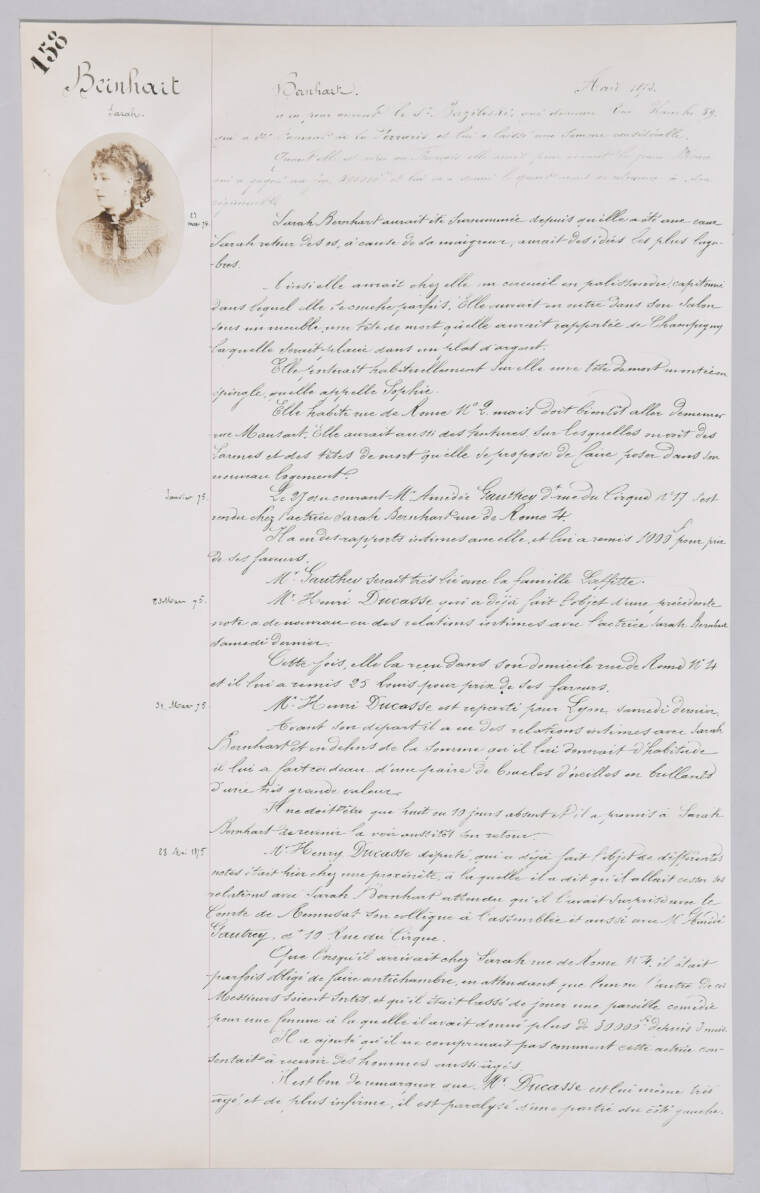 158
Bernhart
Sarah.
Bernhart. 1873.
a eu pour amant le Sr qui demeure Rue 39.
qui a et lui a laissé une somme considérable.
Quand elle elle avait pour amant le
qui a gagné au jeu et lui en a
23
mars 74.
Sarah Bernhart aurait été surnommée depuis qu'elle a été
Sarah retour des os, à cause de sa maigreur, aurait des idées les plus lugu-
bres.
Ainsi elle aurait chez elle un cercueil en palissandre, capitonné
dans lequel elle se couche parfois. Elle aurait en outre dans son salon
sous un meuble, une tête de mort qu'elle aurait rapportée de Champigny
laquelle serait placée dans un plat d'argent.
Elle porterait habituellement sur elle une tête de mort montée en
épingle, qu'elle appelle Sophie.
Elle habite rue de Rome No 2. mais doit bientôt aller demeurer
rue Mansart. Elle aurait aussi des tentures, sur lesquelles on voit des
larmes et des têtes de mort qu'elle se propose de faire poser dans son
nouveau logement.
Janvier 75.
Le 27 du courant Mr Amédée Gauthey dt rue du Cirque No 17 s'est
rendu chez l'actrice Sarah Bernhart rue de Rome 4.
Il a eu des rapports intimes avec elle, et lui a remis 1000f pour prix
de ses faveurs.
Mr Gauthey serait très lié avec la famille Laffitte.
Mars 75.
Mr Henri Ducasse qui a déjà fait l'objet d'une précédente
note a de nouveau eu des relations intimes avec l'actrice Sarah Bernhart
samedi dernier.
Cette fois, elle l'a reçu dans son domicile rue de Rome No 4
et il lui a remis 25 louis pour prix de ses faveurs.
31 Mars 75.
Mr Henri Ducasse est reparti pour Lyon, samedi dernier.
Avant son départ il a eu des relations intimes avec Sarah
Bernhart et en dehors de la somme qu'il lui donnait d'habitude
il lui a fait cadeau d'une paire de boucles d'oreilles en brillants
d'une très grande valeur.
Il ne doit être que huit ou 10 jours absent et il a promis à Sarah
Bernhart de revenir la voir aussitôt son retour.
28 Mai 1875
Mr Henry Ducasse député, qui a déjà fait l'objet de différentes
notes était hier chez une proxénète, à laquelle il a dit qu'il allait cesser ses
relations avec Sarah Bernhart attendu qu'il l'avait surprise avec le
Comte de Remusat son collègue à l'assemblée et aussi avec Mr
Gautrey, dt 19 Rue du Cirque.
Que lorsqu'il arrivait chez Sarah rue de Rome No 4. il était
parfois obligé de faire antichambre, en attendant que l'un ou l'autre de ces
Messieurs soient sortis, et qu'il était lassé de jouer une pareille comédie
pour une femme à laquelle il avait donné plus de 30000f depuis 3 mois.
Il a ajouté qu'il ne comprenait pas comment cette actrice con-
sentait à recevoir des hommes aussi âgés.
Il est bon de remarquer que Mr Ducasse est lui même très
âgé et de plus infirme, il est paralysé d'une partie du côté gauche.